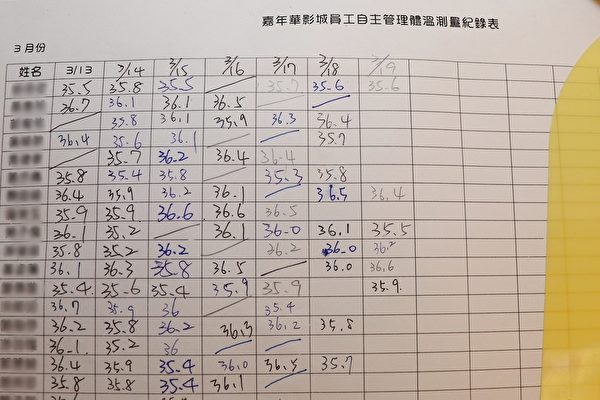 嘉年華影城員工自主管理體溫測量紀錄表
3月份
姓名 3/13 3/14 3/15 3/16 3/17 3/18 3/19
35.5 35.8 35.5 35.7 35.6 35.6
36.7 36.1 36.1 36.5
35.8 36.1 35.9 36.3 36.4
36.4 35.6 36.1 35.7
35.7 36.2 36.4 36.4
35.8 35.4 35.8 35.3 35.8
36.4 35.9 36.2 36.1 36.5 36.4
35.9 35.9 36.6 36.6 36.5
36.1 35.2 36.1 36.0 36.1 35.5
35.8 35.2 36.2 36.2 36.0 36.2
36.1 36.3 35.8 36.5 36.0 36.6
35.4 35.6 35.4 35.9 35.9 35.9
36.7 35.9 36 35.4
36.2 35.8 36.2 36.3 36.2 35.8
36.1 35.2 36
36.4 35.9 35.4 36.0 36.5 35.7
35.8 35.8 35.4 36.1